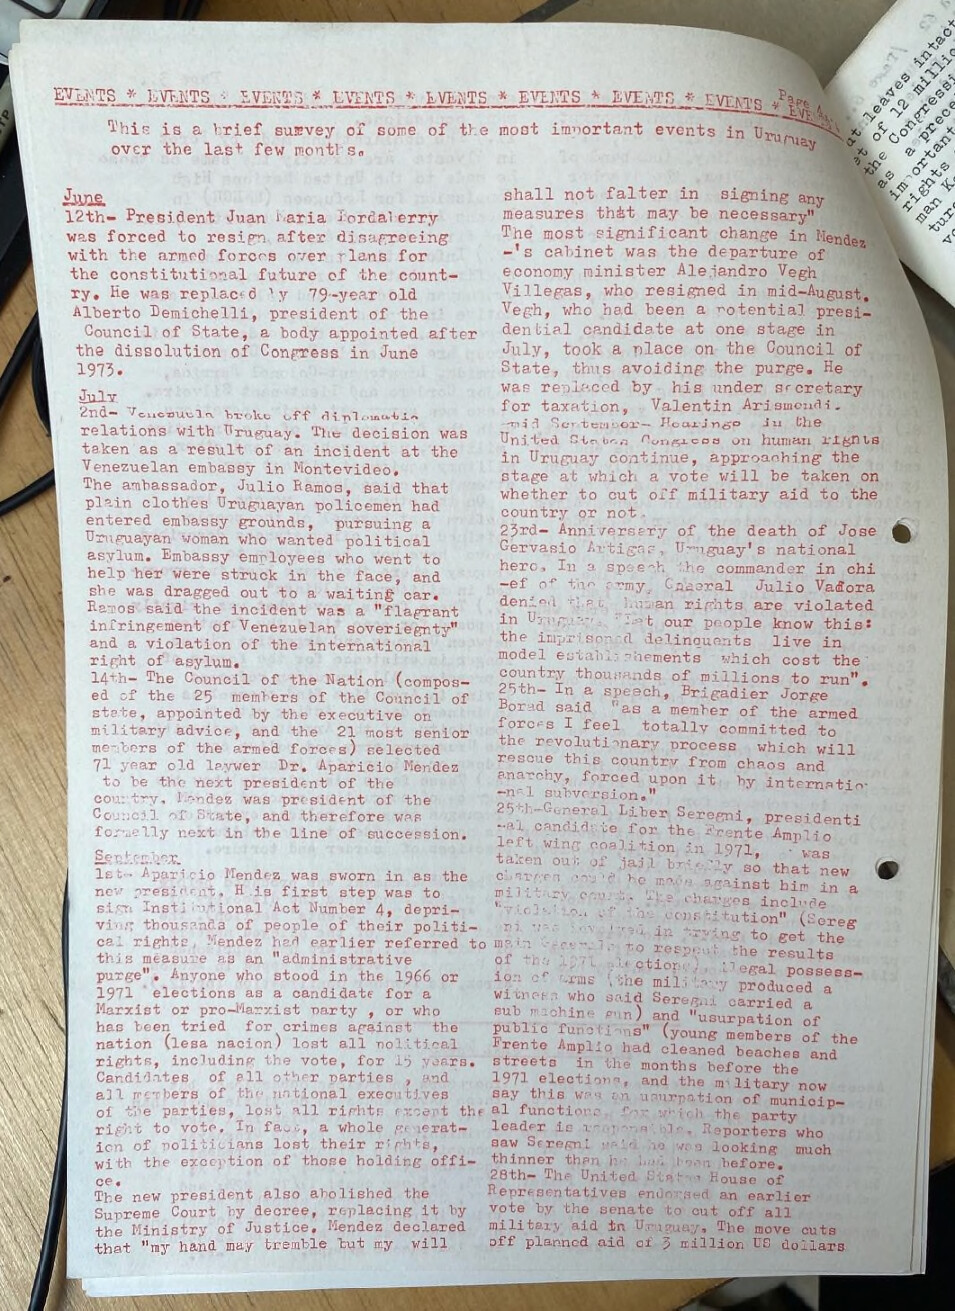 EVENTS * EVENTS * EVENTS * EVENTS * EVENTS * EVENTS * EVENTS * EVENTS *
Page
This is a brief survey of some of the most important events in Uruguay
over the last few months.
June
12th- President Juan Maria Bordaberry
was forced to resign after disagreeing
with the armed forces over plans for
the constitutional future of the count-
ry. He was replaced by 79-year old
Alberto Demichelli, president of the
Council of State, a body appointed after
the dissolution of Congress in June
1973.
July
2nd- Venezuela broke off diplomatic
relations with Uruguay. The decision was
taken as a result of an incident at the
Venezuelan embassy in Montevideo.
The ambassador, Julio Ramos, said that
plain clothes Uruguayan policemen had
entered embassy grounds, pursuing a
Uruguayan woman who wanted political
asylum. Embassy employees who went to
help her were struck in the face, and
she was dragged out to a waiting car.
Ramos said the incident was a "flagrant
infringement of Venezuelan soveriegnty"
and a violation of the international
right of asylum.
14th- The Council of the Nation (compos-
ed of the 25 members of the Council of
state, appointed by the executive on
military advice, and the 21 most senior
members of the armed forces) selected
71 year old laywer Dr. Aparicio Mendez
to be the next president of the
country. Mendez was president of the
Council of State, and therefore was
formelly next in the line of succession.
September
1st- Aparicio Mendez was sworn in as the
new president. His first step was to
sign Institutional Act Number 4, depri-
ving thousands of people of their politi-
cal rights, Mendez had earlier referred to
this measure as an "administrative
purge". Anyone who stood in the 1966 or
1971 elections as a candidate for a
Marxist or pro-Marxist party , or who
has been tried for crimes against the
nation (lesa nacion) lost all political
rights, including the vote, for 15 years.
Candidates of all other parties , and
all members of the national executives
of the parties, lost all rights except the
right to vote. In fact, a whole generat-
ion of politicians lost their rights,
with the exception of those holding offi-
ce.
The new president also abolished the
Supreme Court by decree, replacing it by
the Ministry of Justice. Mendez declared
that "my hand may tremble but my will
shall not falter in signing any
measures that may be necessary"
The most significant change in Mendez
-'s cabinet was the departure of
economy minister Alejandro Vegh
Villegas, who resigned in mid-August.
Vegh, who had been a potential presi-
dential candidate at one stage in
July, took a place on the Council of
State, thus avoiding the purge. He
was replaced by his under secretary
for taxation, Valentin Arismendi.
-mid September- Hearings in the
United States Congress on human rights
in Uruguay continue, approaching the
stage at which a vote will be taken on
whether to cut off military aid to the
country or not.
23rd- Anniversary of the death of Jose
Gervasio Artigas, Uruguay's national
hero. In a speech the commander in chi
-ef of the army, General Julio Vadora
denied that human rights are violated
in Uruguay. "Let our people know this:
the imprisoned delinquents live in
model establishements which cost the
country thousands of millions to run".
25th- In a speech, Brigadier Jorge
Borad said "as a member of the armed
forces I feel totally committed to
the revolutionary process which will
rescue this country from chaos and
anarchy, forced upon it by internatio-
-nal subversion."
25th-General Liber Seregni, presidenti
-al candidate for the Frente Amplio
left wing coalition in 1971, was
taken out of jail briefly so that new
charges could be made against him in a
military court. The charges include
"violation of the constitution" (Sereg
ni was involved in trying to get the
main to respect the results
of the 1971 elections), illegal possess-
ion of arms (the military produced a
witness who said Seregni carried a
sub machine gun) and "usurpation of
public functions" (young members of the
Frente Amplio had cleaned beaches and
streets in the months before the
1971 elections, and the military now
say this was an usurpation of municip-
al functions, for which the party
leader is responsible. Reporters who
saw Seregni said he was looking much
thinner than he had been before.
28th- The United States House of
Representatives endorsed an earlier
vote by the senate to cut off all
military aid to Uruguay. The move cuts
off planned aid of 3 million US dollars
leaves intact
of 12 millio
the Congressi
as a prece
important
rights
man K